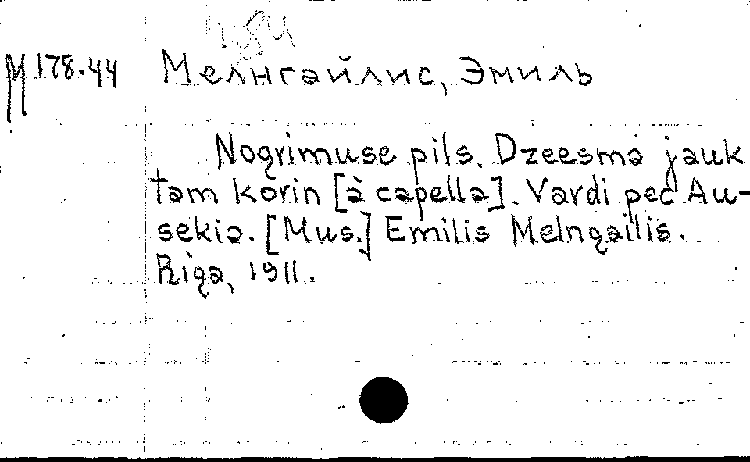 M 178.44 Мелнгайлис, Эмиль
Nogrimuse pils. Dzeesma jauk
tam korin [à capella]. Vardi pec Au-
sekia. [Mus.] Emilis Melngailis.
Riga, 1911.